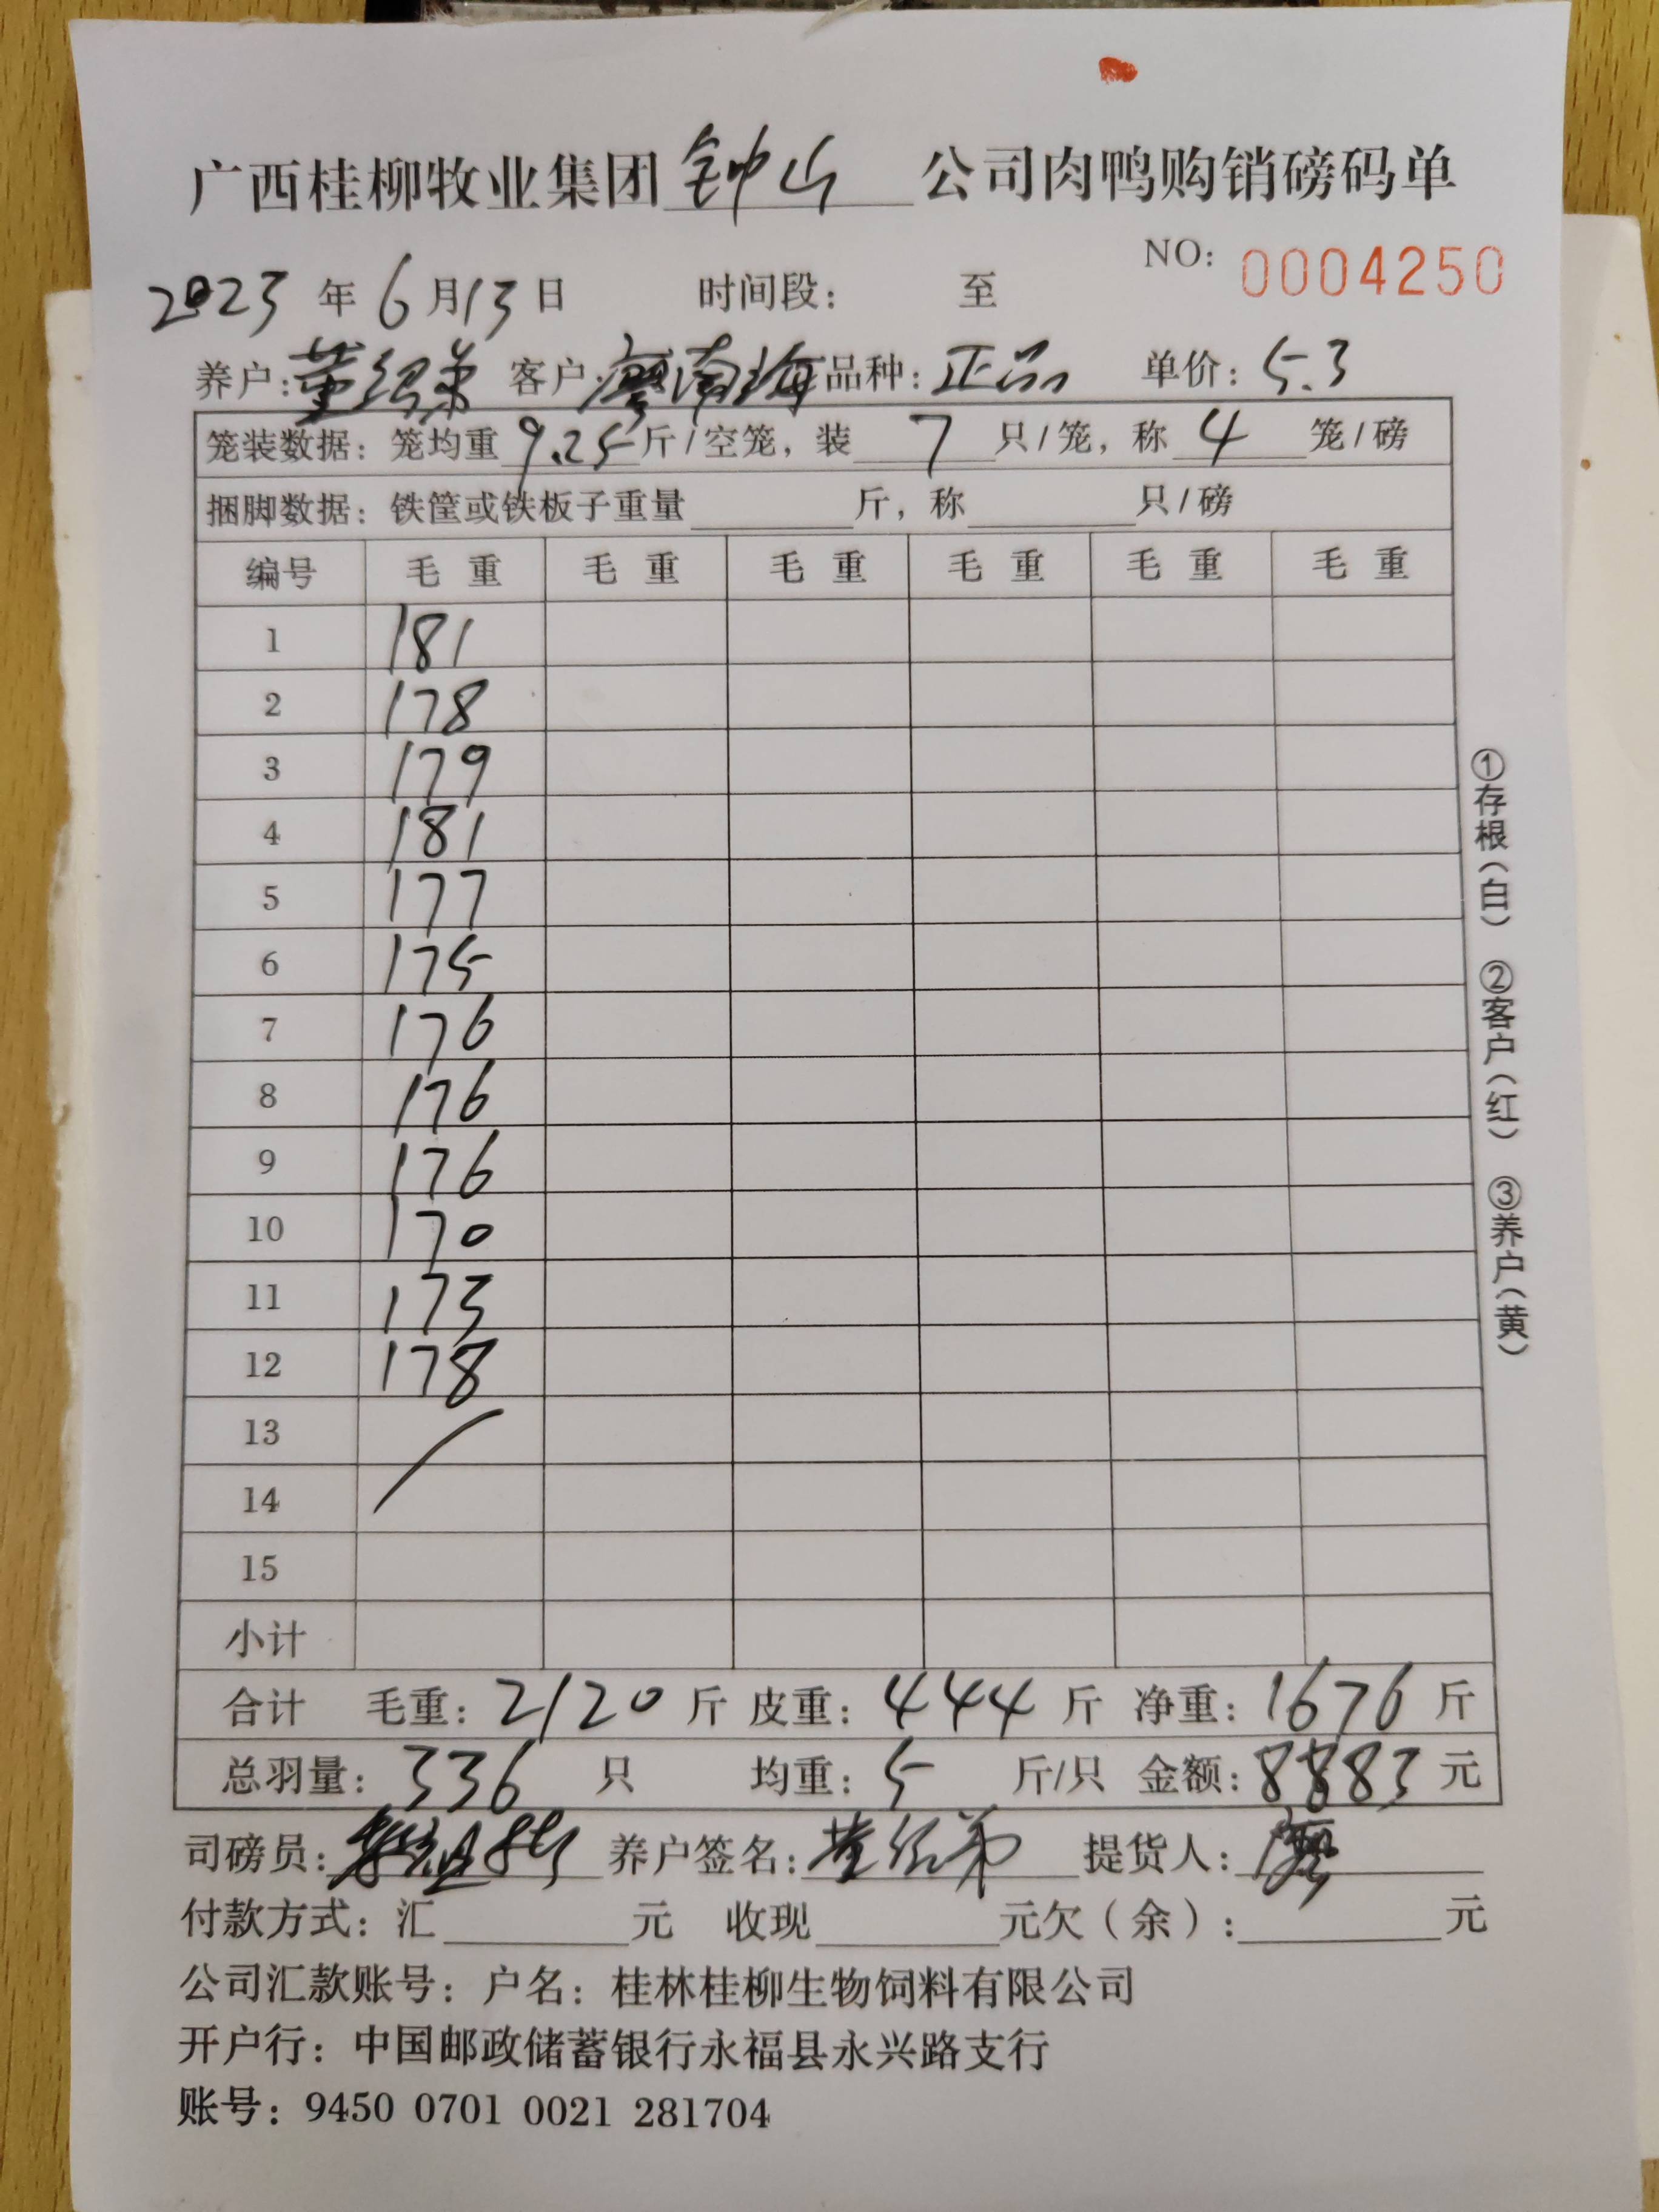 广西桂柳牧业集团钟山公司肉鸭购销磅码单
NO: 0004250
2023年6月13日 时间段: 至
养户: 董绍弟 客户: 廖南海 品种: 正品 单价: 5.3
笼装数据: 笼均重9.25斤/空笼, 装7只/笼, 称4笼/磅
捆脚数据: 铁筐或铁板子重量 斤, 称 只/磅
编号 毛重 毛重 毛重 毛重 毛重 毛重
1 181
2 178
3 179
4 181
5 177
6 175
7 176
8 176
9 176
10 170
11 173
12 178
13
14
15
小计
合计 毛重: 2120斤 皮重: 444斤 净重: 1676斤
总羽量: 336只 均重: 5斤/只 金额: 8883元
司磅员: 养户签名: 董绍弟 提货人: 廖
付款方式: 汇 元 收现 元欠(余): 元
公司汇款账号: 户名: 桂林桂柳生物饲料有限公司
开户行: 中国邮政储蓄银行永福县永兴路支行
账号: 9450 0701 0021 281704
①存根(白) ②客户(红) ③养户(黄)